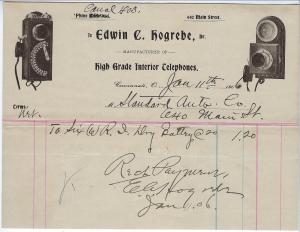 Canal 403.
'Phone
442 Main Street.
To Edwin C. Hogrebe, Dr.
MANUFACTURER OF
High Grade Interior Telephones.
Cincinnati, O. Jan 11th 1906
Standard Auto. Co.
Main St.
Terms:
Net.
To Six W.R.I. Dry Battery @20 1.20
Recd Payment,
E.C. Hogrebe
Jan 06.